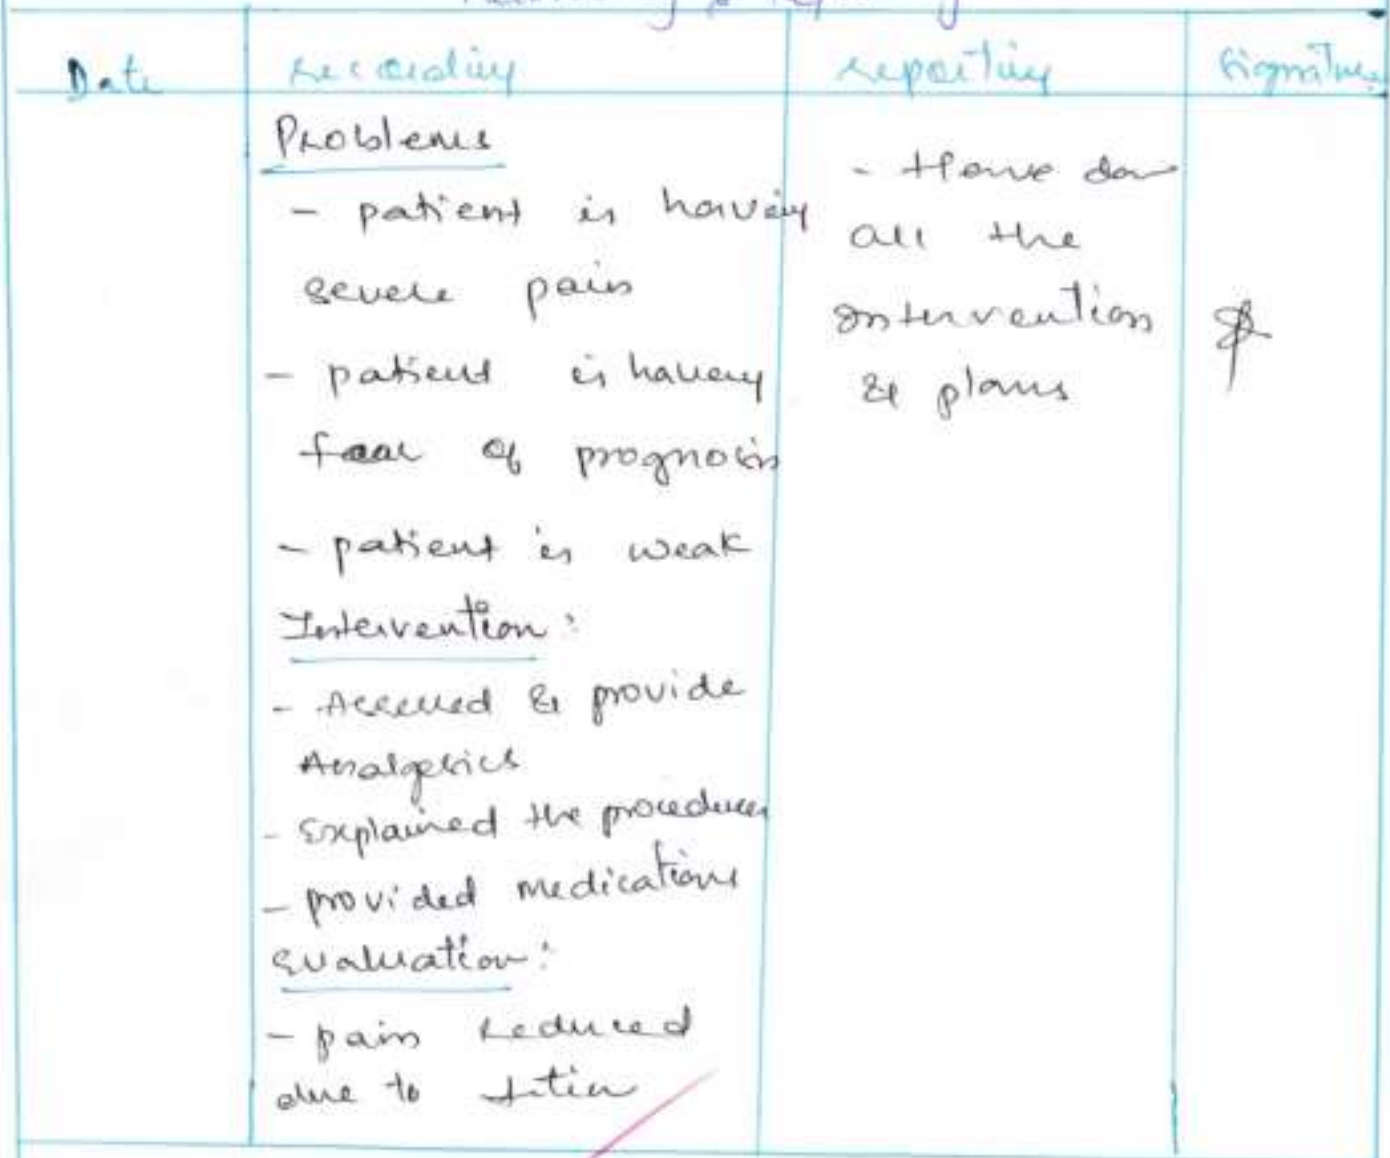 Date recording reporting Signature
Problems
- patient is having
severe pain
- patient is having
fear of prognosis
- patient is weak
Intervention:
- Assessed & provide
Analgesics
- Explained the procedures
- provided medications
Evaluation:
- pain reduced
due to
- Have don
all the
Intervention
& plans